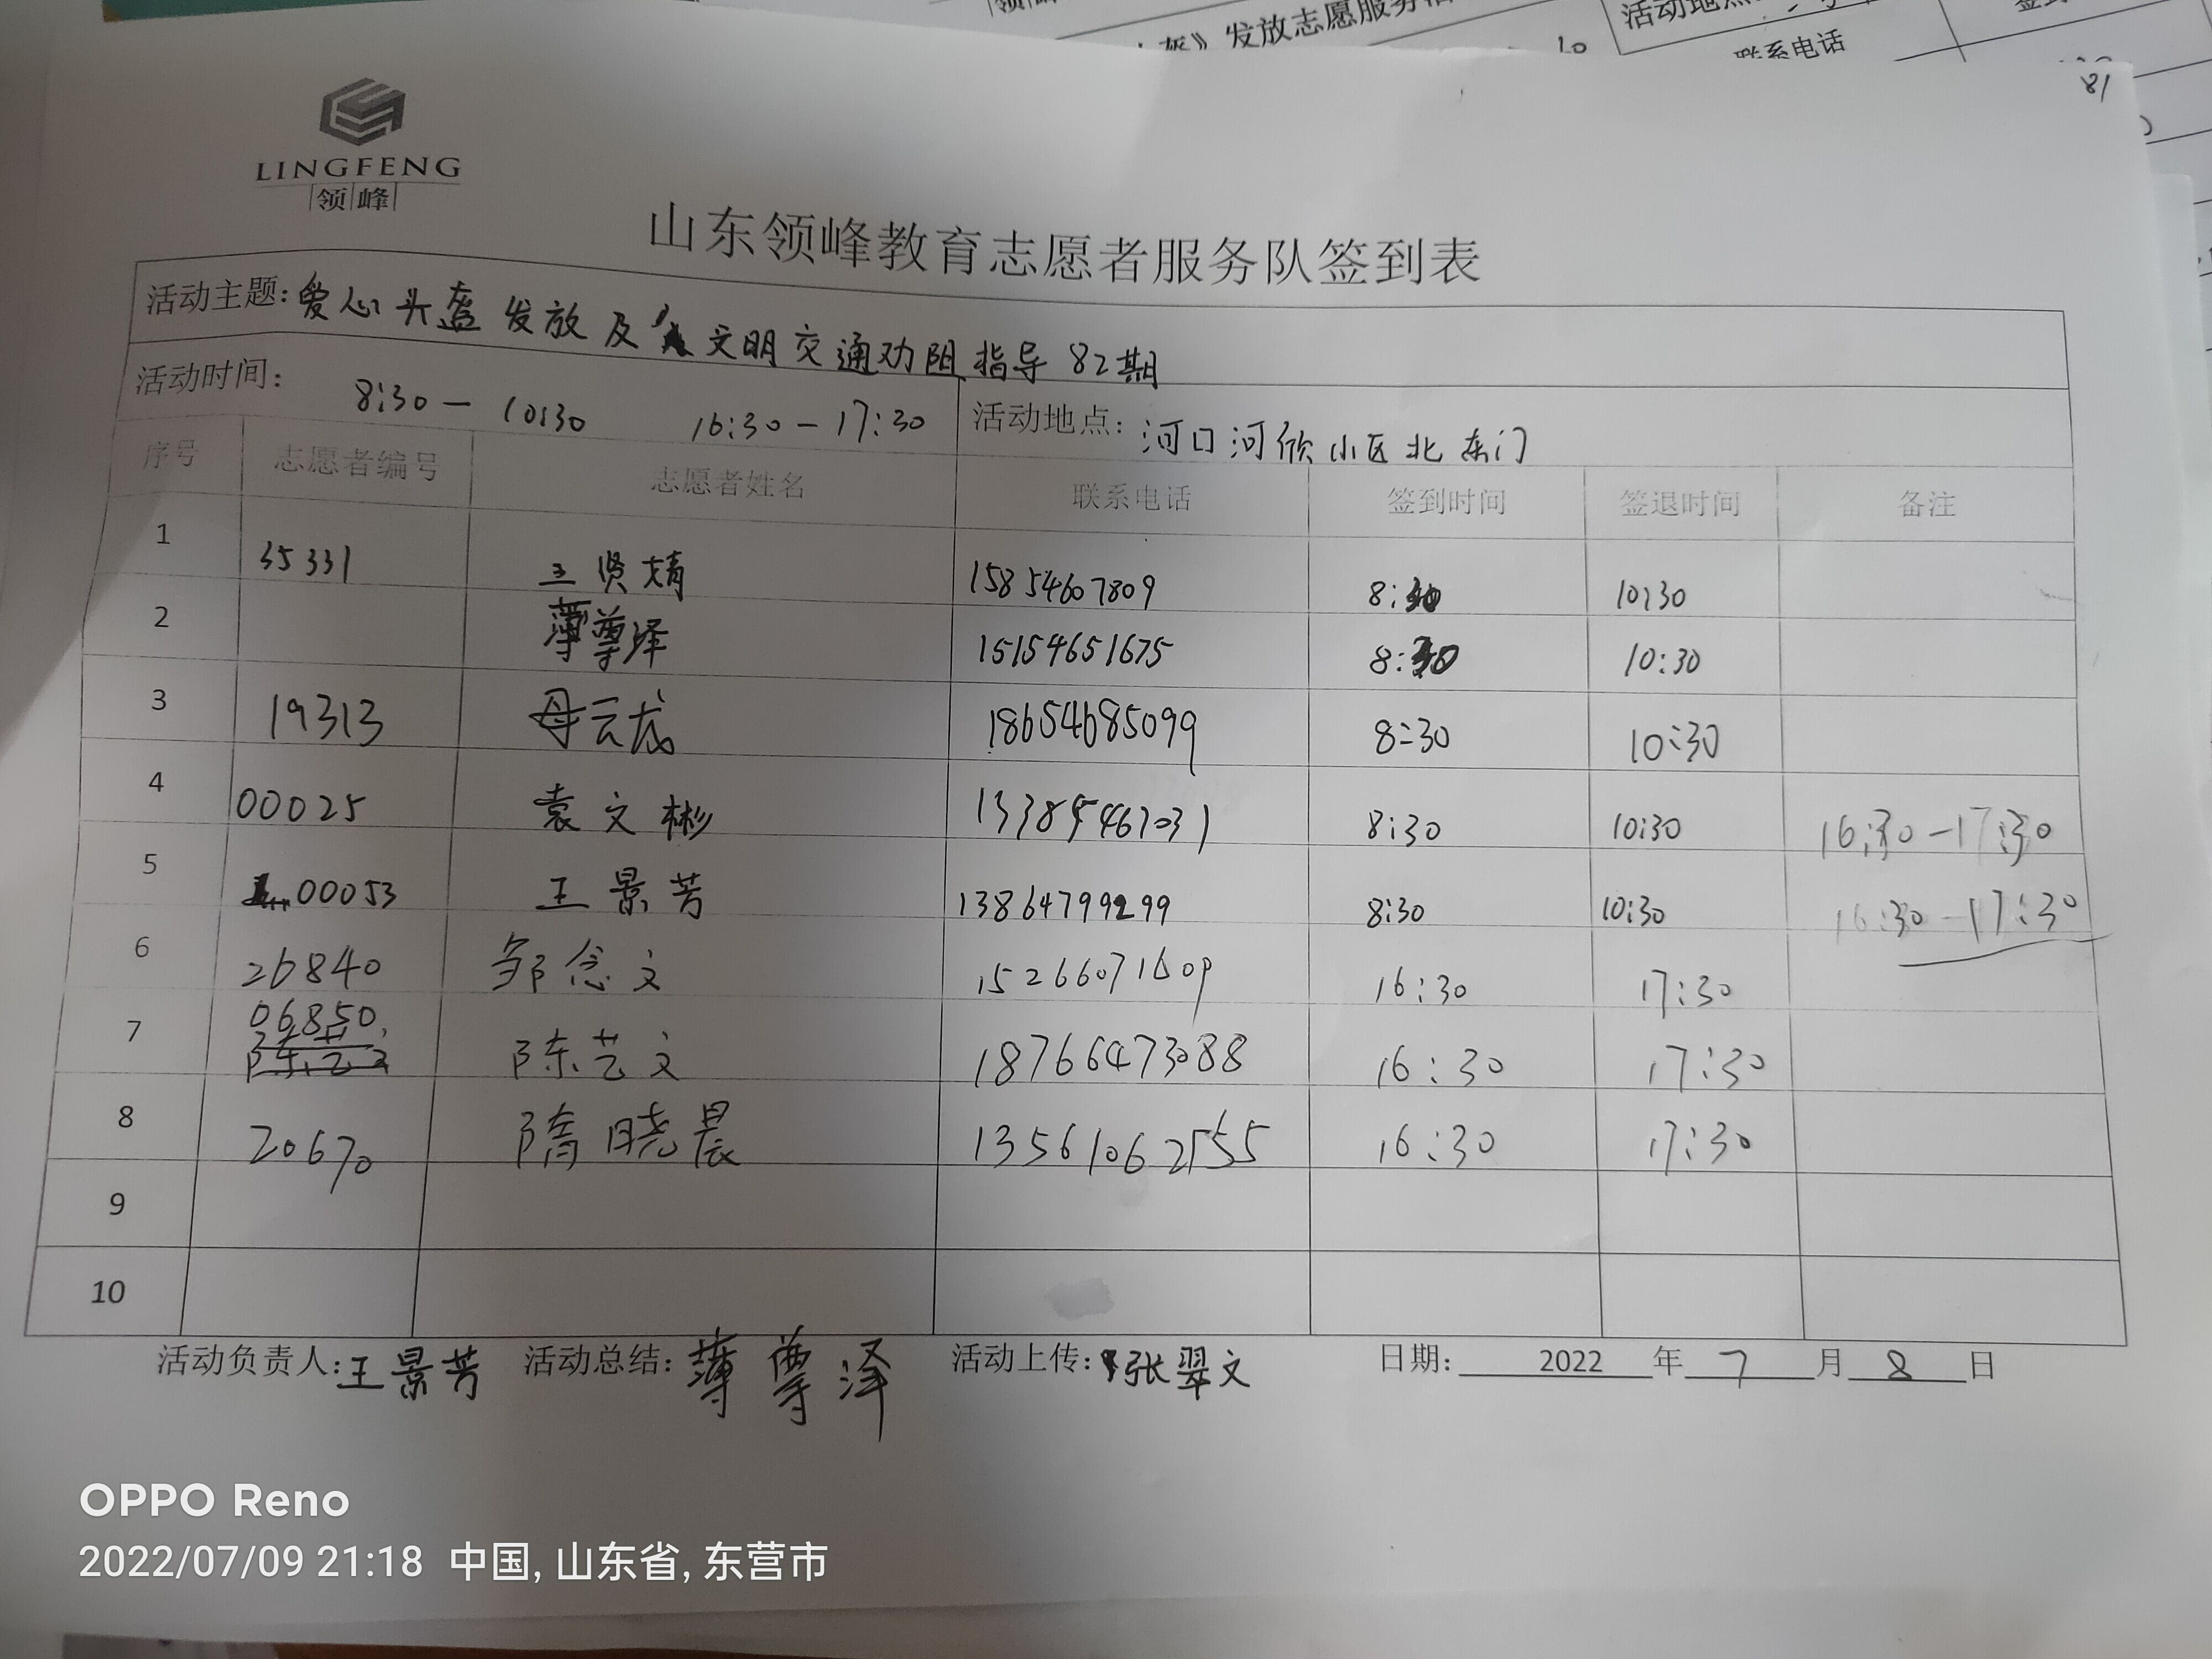 领峰
灰》发放志愿服务活
10
活动地点
联系电话
签到
81
LINGFENG
领峰
山东领峰教育志愿者服务队签到表
活动主题:爱心头盔发放及文明交通劝阻指导82期
活动时间: 8:30－10:30 16:30－17:30 活动地点: 河口河欣小区北东门
序号 志愿者编号 志愿者姓名 联系电话 签到时间 签退时间 备注
1 35331 王贤婧 15854607809 8:30 10:30
2 薄尊泽 15154651675 8:30 10:30
3 19313 母云龙 18654685099 8:30 10:30
4 00025 袁文彬 13385467031 8:30 10:30 16:30－17:30
5 00053 王景芳 13864799299 8:30 10:30 16:30－17:30
6 26840 邹念文 16:30 17:30
7 06850 陈艺文 18766473088 16:30 17:30
8 20670 隋晓晨 13561062555 16:30 17:30
9
10
活动负责人:王景芳 活动总结:薄尊泽 活动上传:张翠文 日期: 2022 年 7 月 8 日
OPPO Reno
2022/07/09 21:18 中国, 山东省, 东营市